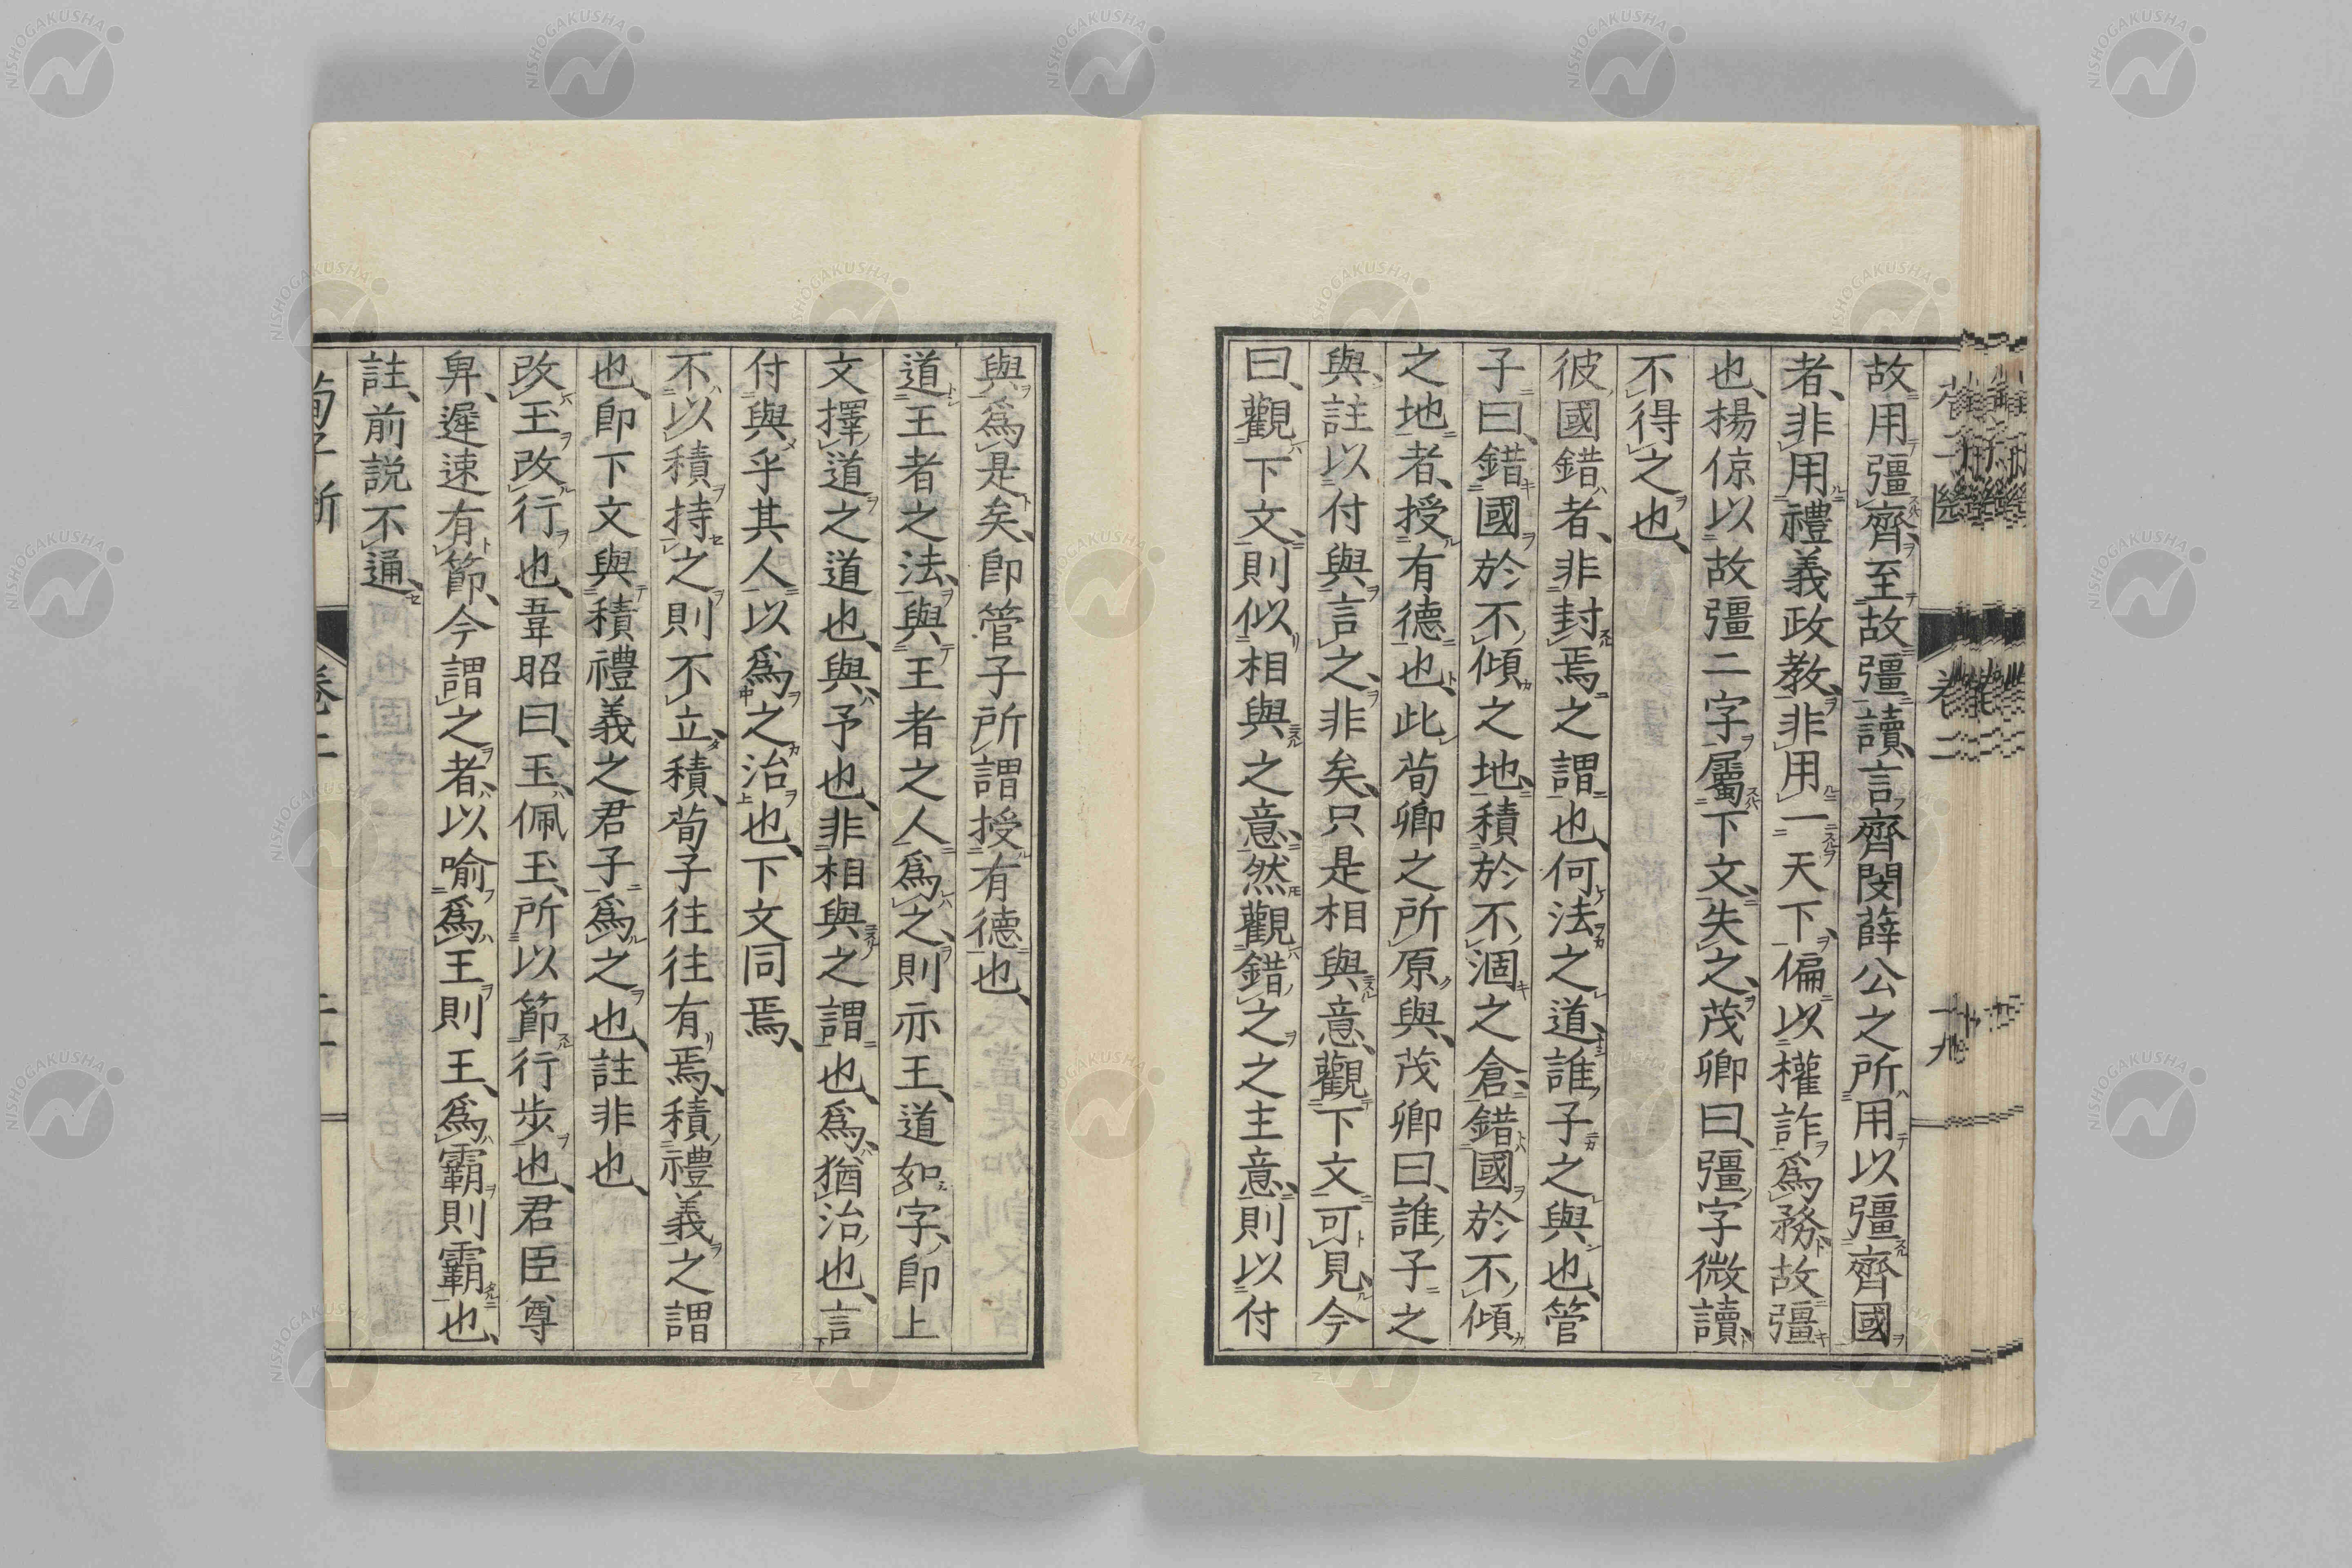 故用彊齊至故彊讀言齊閔薛公之所用以彊齊國
者、非用禮義政教、非用一天下、偏以權詐爲務、故彊
也、楊倞以故彊二字屬下文、失之、茂卿曰、彊字微讀、
不得之也、
彼國錯者、非封焉之謂也、何法之道、誰子之與也、管
子曰、錯國於不傾之地、積於不涸之倉、錯國於不傾
之地者、授有德也、此荀卿之所原與、茂卿曰、誰子之
與、註以付與言之、非矣、只是相與意、觀下文可見、今
曰、觀下文、則似相與之意、然觀錯之之主意、則以付
與爲是矣、卽管子所謂授有德也、
道王者之法、與王者之人爲之、則亦王、道如字、卽上
文擇道之道也、與、予也、非相與之謂也、爲、猶治也、言
付與乎其人以爲之治也、下文同焉、
不以積持之則不立、積、荀子往往有焉、積禮義之謂
也、卽下文與積禮義之君子爲之也、註非也、
改玉改行也、韋昭曰、玉、佩玉、所以節行步也、君臣尊
卑、遲速有節、今謂之者、以喻爲王則王、爲霸則霸也、
註、前説不通、
卷二
十九
NISHOGAKUSHA